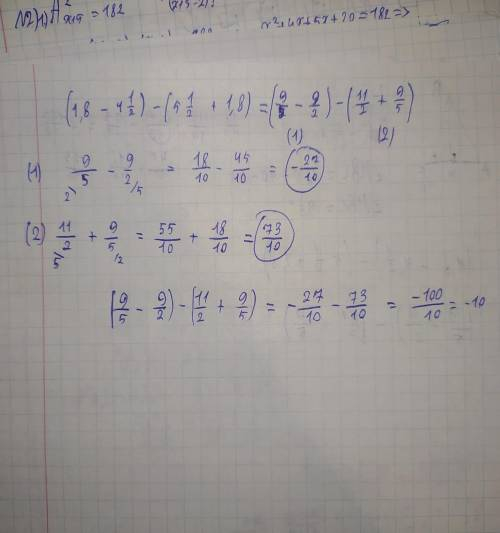 N2) 1) A²ₓ₊₅ = 182
x² + 4x + 5x + 20 = 182 =>
(1,8 - 4 1/2) - (5 1/2 + 1,8) = (9/5 - 9/2) - (11/2 + 9/5)
(1) (2)
(1) 9/5 - 9/2 = 18/10 - 45/10 = -27/10
2) /5
(2) 11/2 + 9/5 = 55/10 + 18/10 = 73/10
5) /2
(9/5 - 9/2) - (11/2 + 9/5) = -27/10 - 73/10 = -100/10 = -10